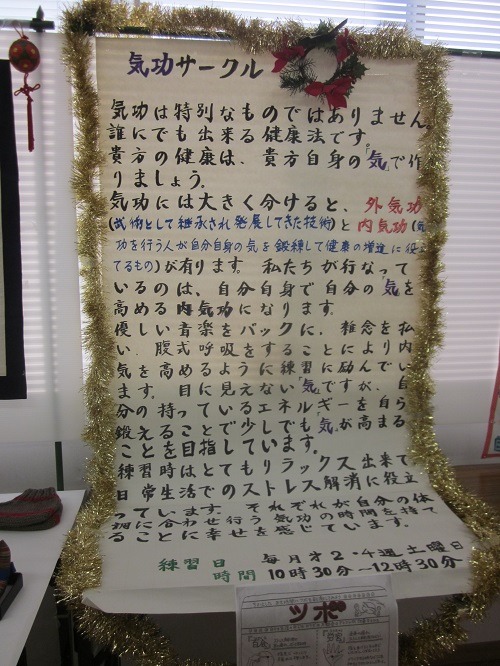 気功サークル
気功は特別なものではありません。
誰にでも出来る健康法です。
貴方の健康は、貴方自身の「気」で作
りましょう。
気功には大きく分けると、外気功
(武術として継承され発展してきた技術)と内気功(気
功を行う人が自分自身の気を鍛練して健康の増進に役立
てるもの)が有ります。私たちが行なって
いるのは、自分自身で自分の「気」を
高める内気功になります。
優しい音楽をバックに、雑念を払
い、腹式呼吸をすることにより内
気を高めるように練習に励んでい
ます。目に見えない「気」ですが、自
分の持っているエネルギーを自ら
鍛えることで少しでも「気」が高まる
ことを目指しています。
練習時はとてもリラックス出来て
日常生活でのストレス解消に役立
っています。それぞれが自分の体
調に合わせ行う気功の時間を持て
ることに幸せを感じています。
練習日 毎月才2・4週土曜日
時間 10時30分〜12時30分
ツボ